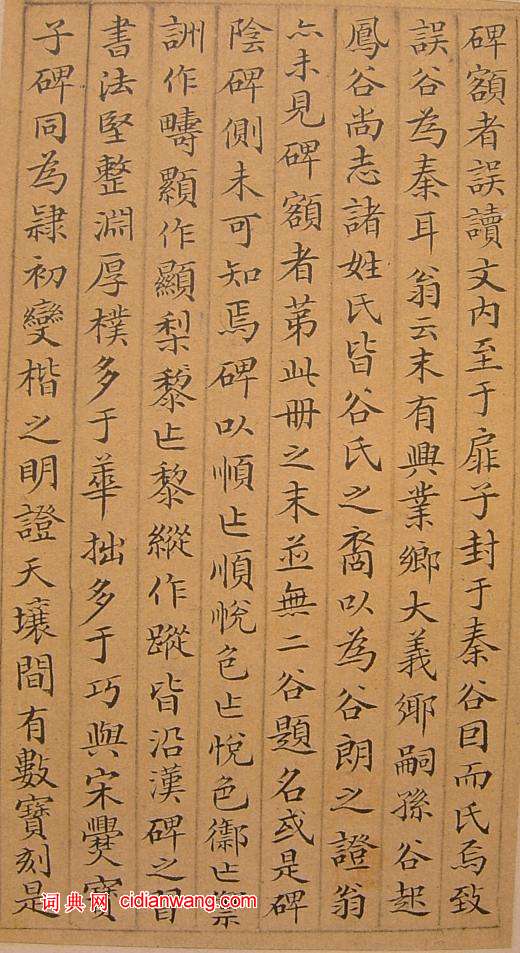 碑額者誤讀文内至于扉子封于秦谷因而氏焉致
誤谷為秦耳翁云末有興業鄉大義鄉嗣孫谷起
鳳谷尚志諸姓氏皆谷氏之裔以為谷朗之證翁
亦未見碑額者苐此冊之末並無二谷題名或是碑
陰碑側未可知焉碑以順㐀順悅色㐀悅色禦㐀禦
詶作疇顯作顯梨黎㐀黎縱作蹤皆沿漢碑之習
書法堅整淵厚樸多于華拙多于巧與宋爨寶
子碑同為隸初變楷之明證天壤間有數寶刻是
词典网 cidianwang.com